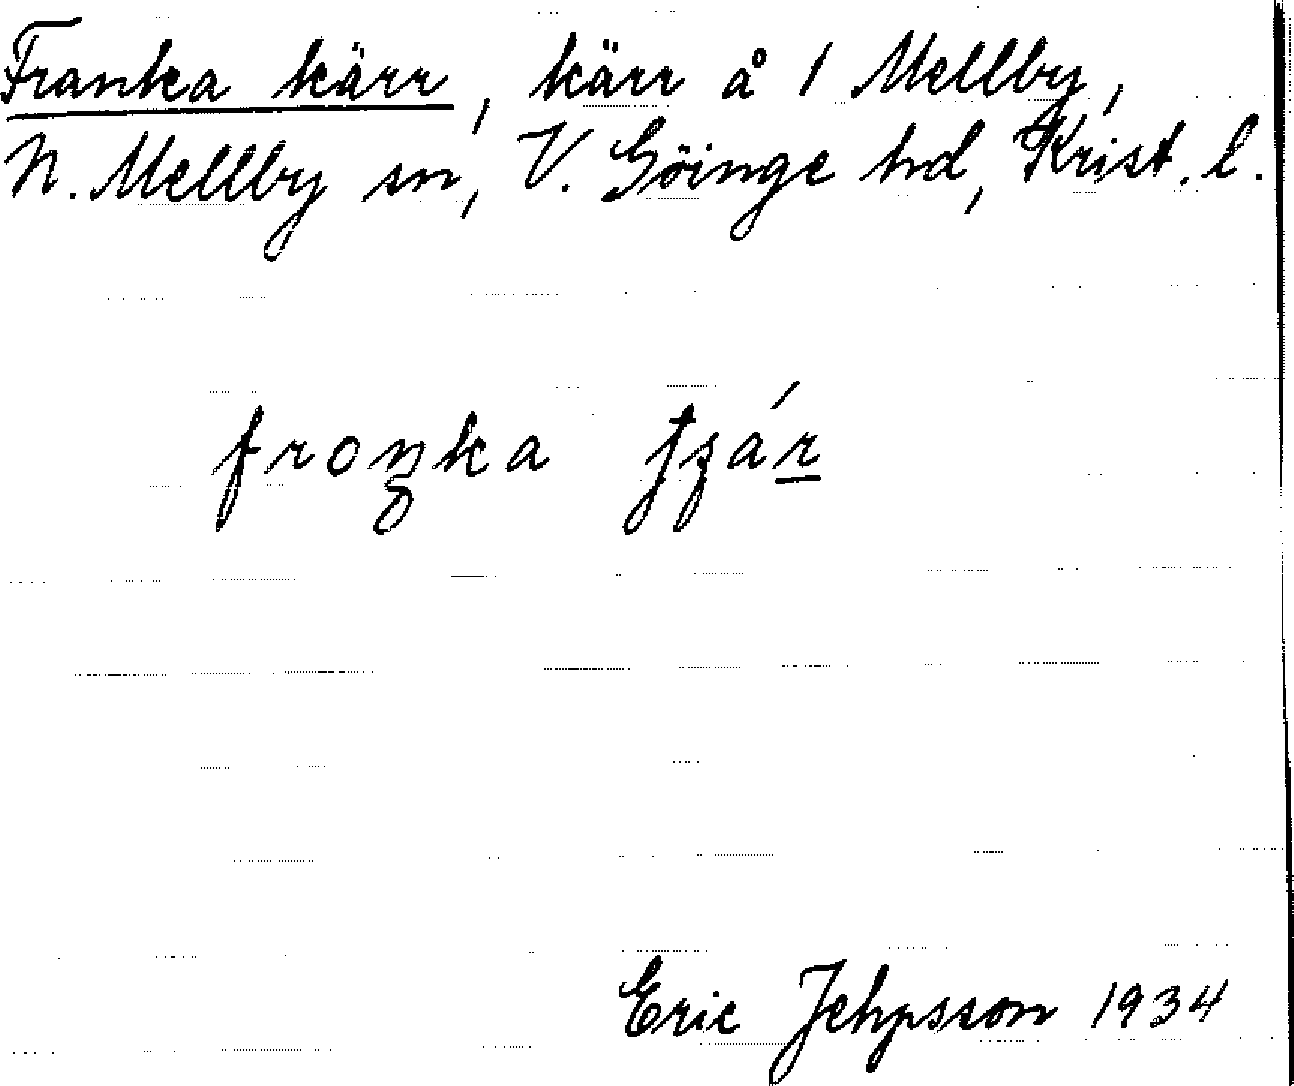 Franka kärr, kärr å 1 Mellby,
N. Mellby sn, V. Göinge hd, Krist. l.
froŋka
Eric Jehpsson 1934